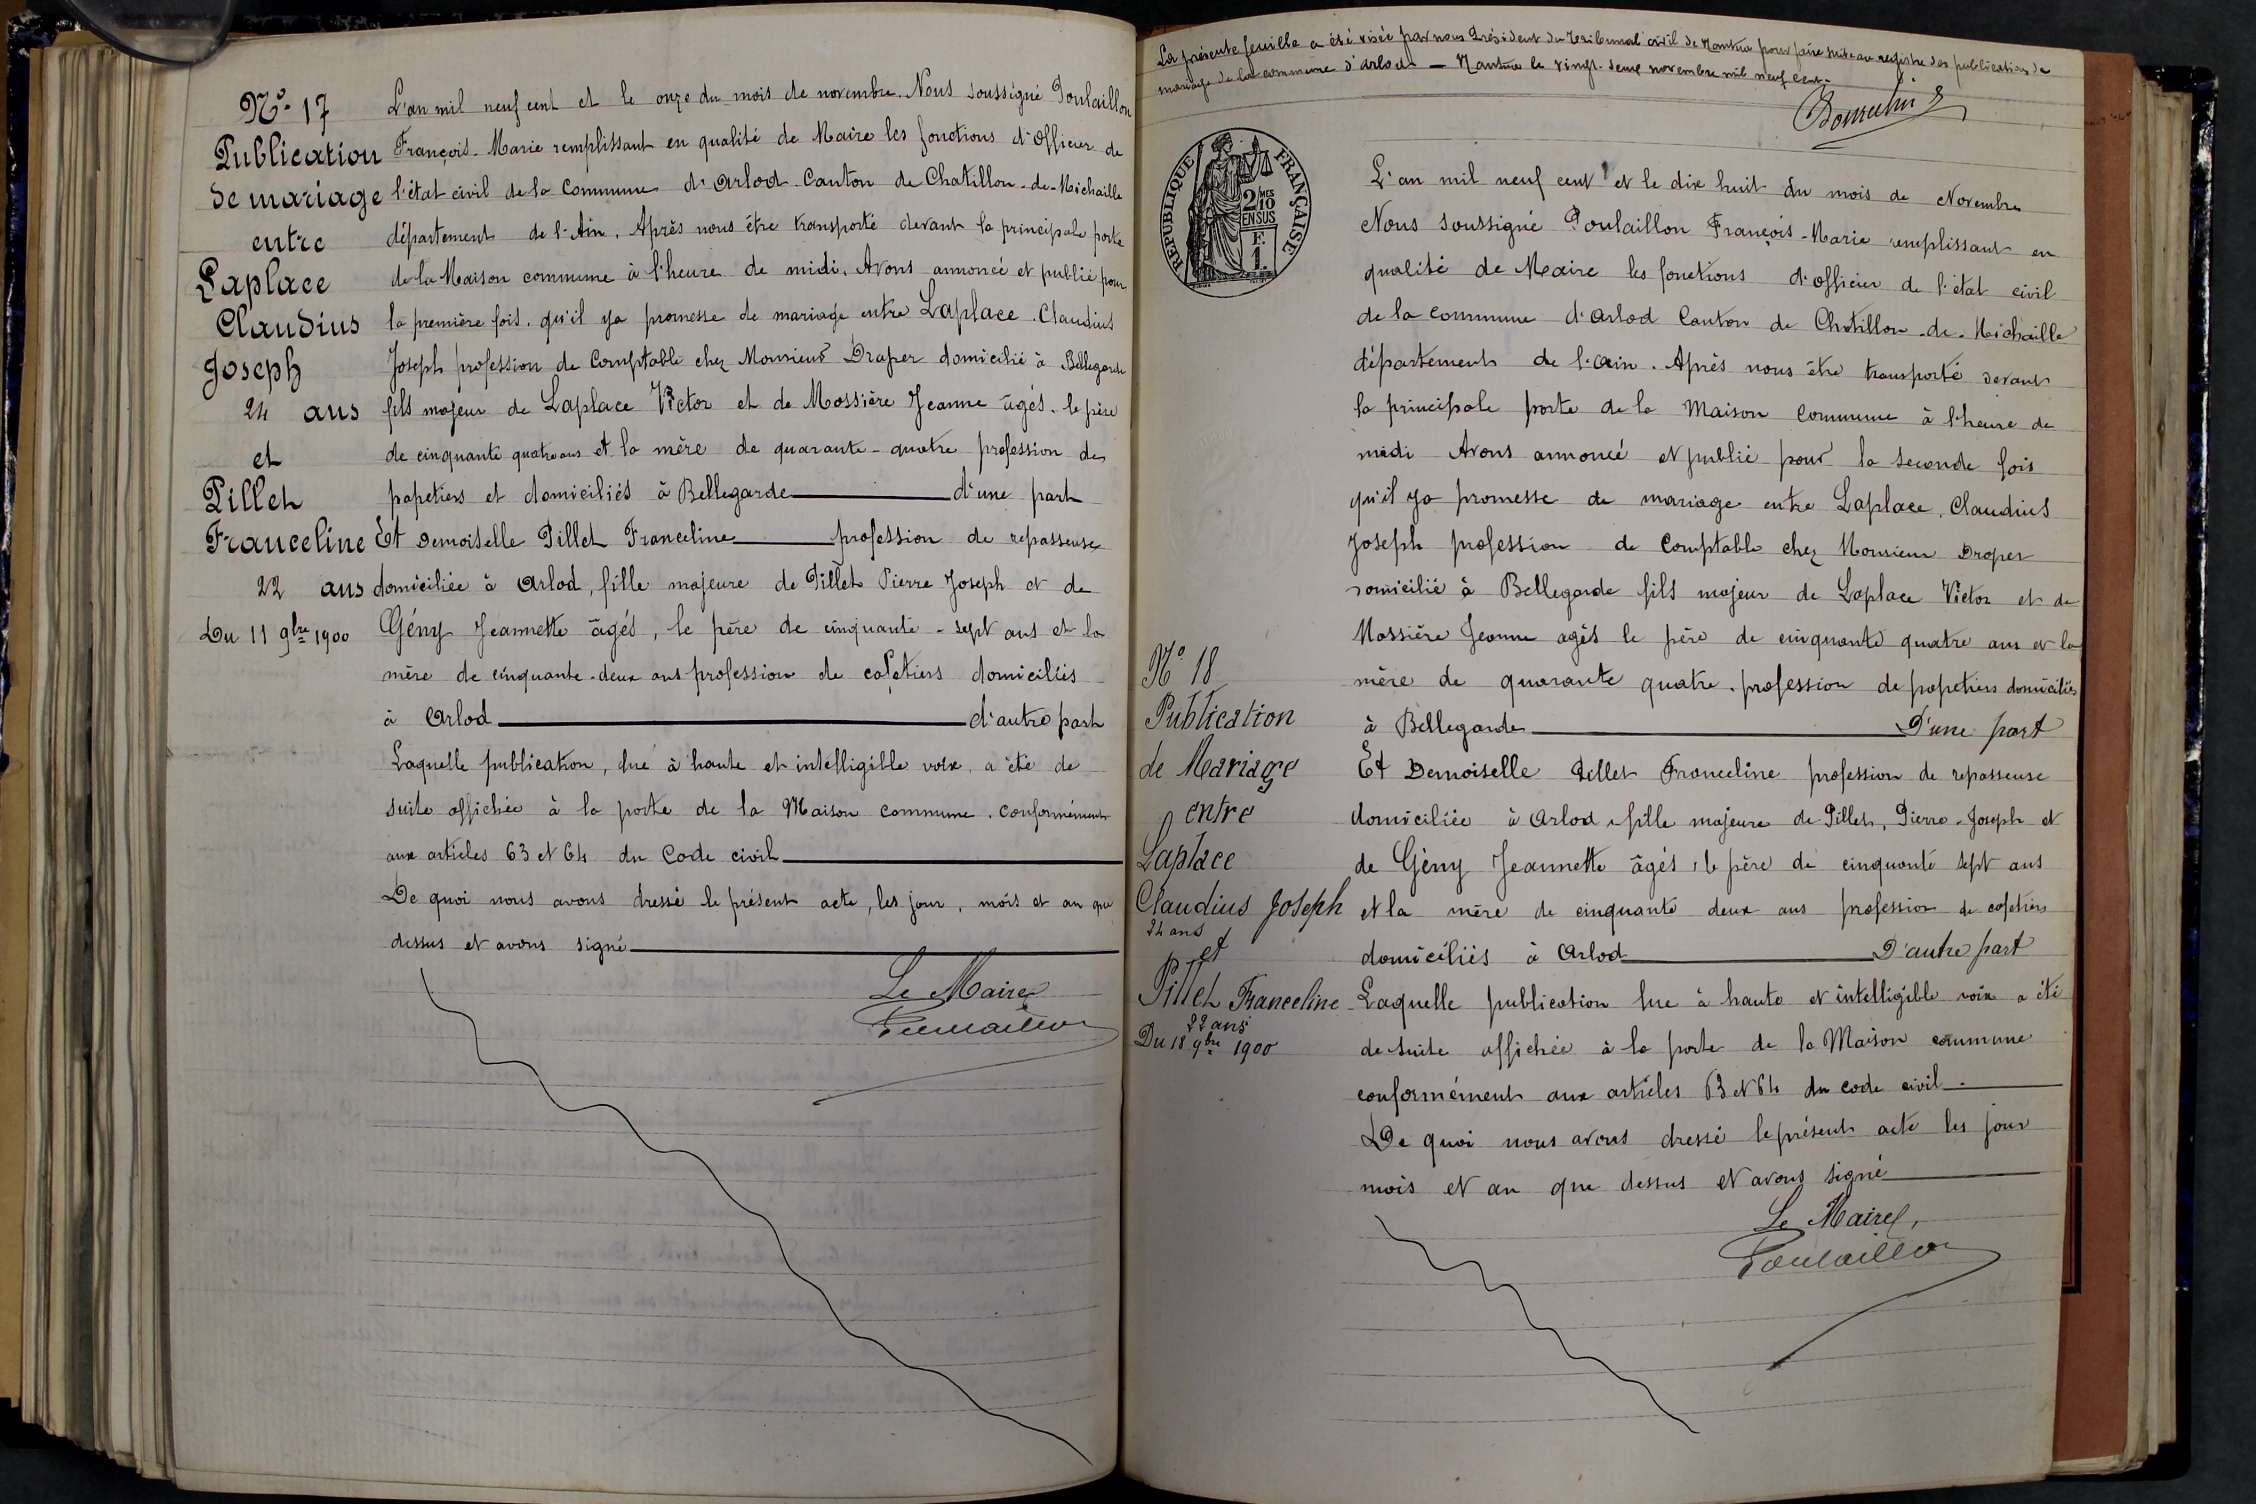 N° 17
Publication
de mariage
entre
Laplace
Claudius
Joseph
24 ans
et
Pillet
Franceline
22 ans
Du 11 9bre 1900
L'an mil neuf cent et le onze du mois de novembre. Nous soussigné Poulaillon
François-Marie remplissant en qualité de Maire les fonctions d'Officier de
l'état civil de la Commune d'Arlod. Canton de Chatillon-de-Michaille
département de l'Ain. Après nous être transporté devant la principale porte
de la Maison commune à l'heure de midi. Avons annoncé et publié pour
la première fois. qu'il ya promesse de mariage entre Laplace. Claudius
Joseph profession de Comptable chez Monsieur Draper domicilié à Bellegarde
fils majeur de Laplace Victor et de Mossière Jeanne âgés. le père
de cinquante quatre ans et la mère de quarante-quatre profession de
papetiers et domiciliés à Bellegarde d'une part
Et Demoiselle Pillet Franceline profession de repasseuse
domiciliée à Arlod, fille majeure de Pillet Pierre Joseph et de
Gény Jeannette âgés, le père de cinquante-sept ans et la
mère de cinquante-deux ans profession de cafetiers domiciliés
à Arlod d'autre part
Laquelle publication, lue à haute et intelligible voix, a été de
suite affichée à la porte de la Maison commune. conformément
aux articles 63 et 64 du Code civil
De quoi nous avons dressé le présent acte, les jour, mois et an que
dessus et avons signé
Le Maire
Poulaillon
La présente feuille a été visée par nous Président du Tribunal civil de Nantua pour faire suite au registre des publications de
mariage de la commune d'Arlod — Nantua le vingt-deux novembre mil neuf cent.
RÉPUBLIQUE FRANÇAISE
2 MES
10
EN SUS
F.
1.
L'an mil neuf cent et le dix huit du mois de Novembre
Nous soussigné Poulaillon François-Marie remplissant en
qualité de Maire les fonctions d'officier de l'état civil
de la commune d'Arlod Canton de Chatillon-de-Michaille
département de l'Ain. Après nous être transporté devant
la principale porte de la Maison commune à l'heure de
midi Avons annoncé et publié pour la seconde fois
qu'il ya promesse de mariage entre Laplace, Claudius
Joseph profession de Comptable chez Monsieur Draper
domicilié à Bellegarde fils majeur de Laplace Victor et de
Mossière Jeanne agés le père de cinquante quatre ans et la
mère de quarante quatre. profession de papetiers domiciliés
à Bellegarde D'une part
Et Demoiselle Pillet Franceline profession de repasseuse
domiciliée à Arlod fille majeure de Pillet, Pierre-Joseph et
de Gény Jeannette âgés, le père de cinquante sept ans
et la mère de cinquante deux ans profession de cafetiers
domiciliés à Arlod D'autre part
Laquelle publication lue à haute et intelligible voix a été
de suite affichée à la porte de la Maison commune
conformément aux articles 63 et 64 du code civil
De quoi nous avons dressé le présent acte les jour
mois et an que dessus et avons signé
Le Maire,
Poulaillon
N° 18
Publication
de Mariage
entre
Laplace
Claudius Joseph
24 ans
et
Pillet Franceline
22 ans
Du 18 9bre 1900